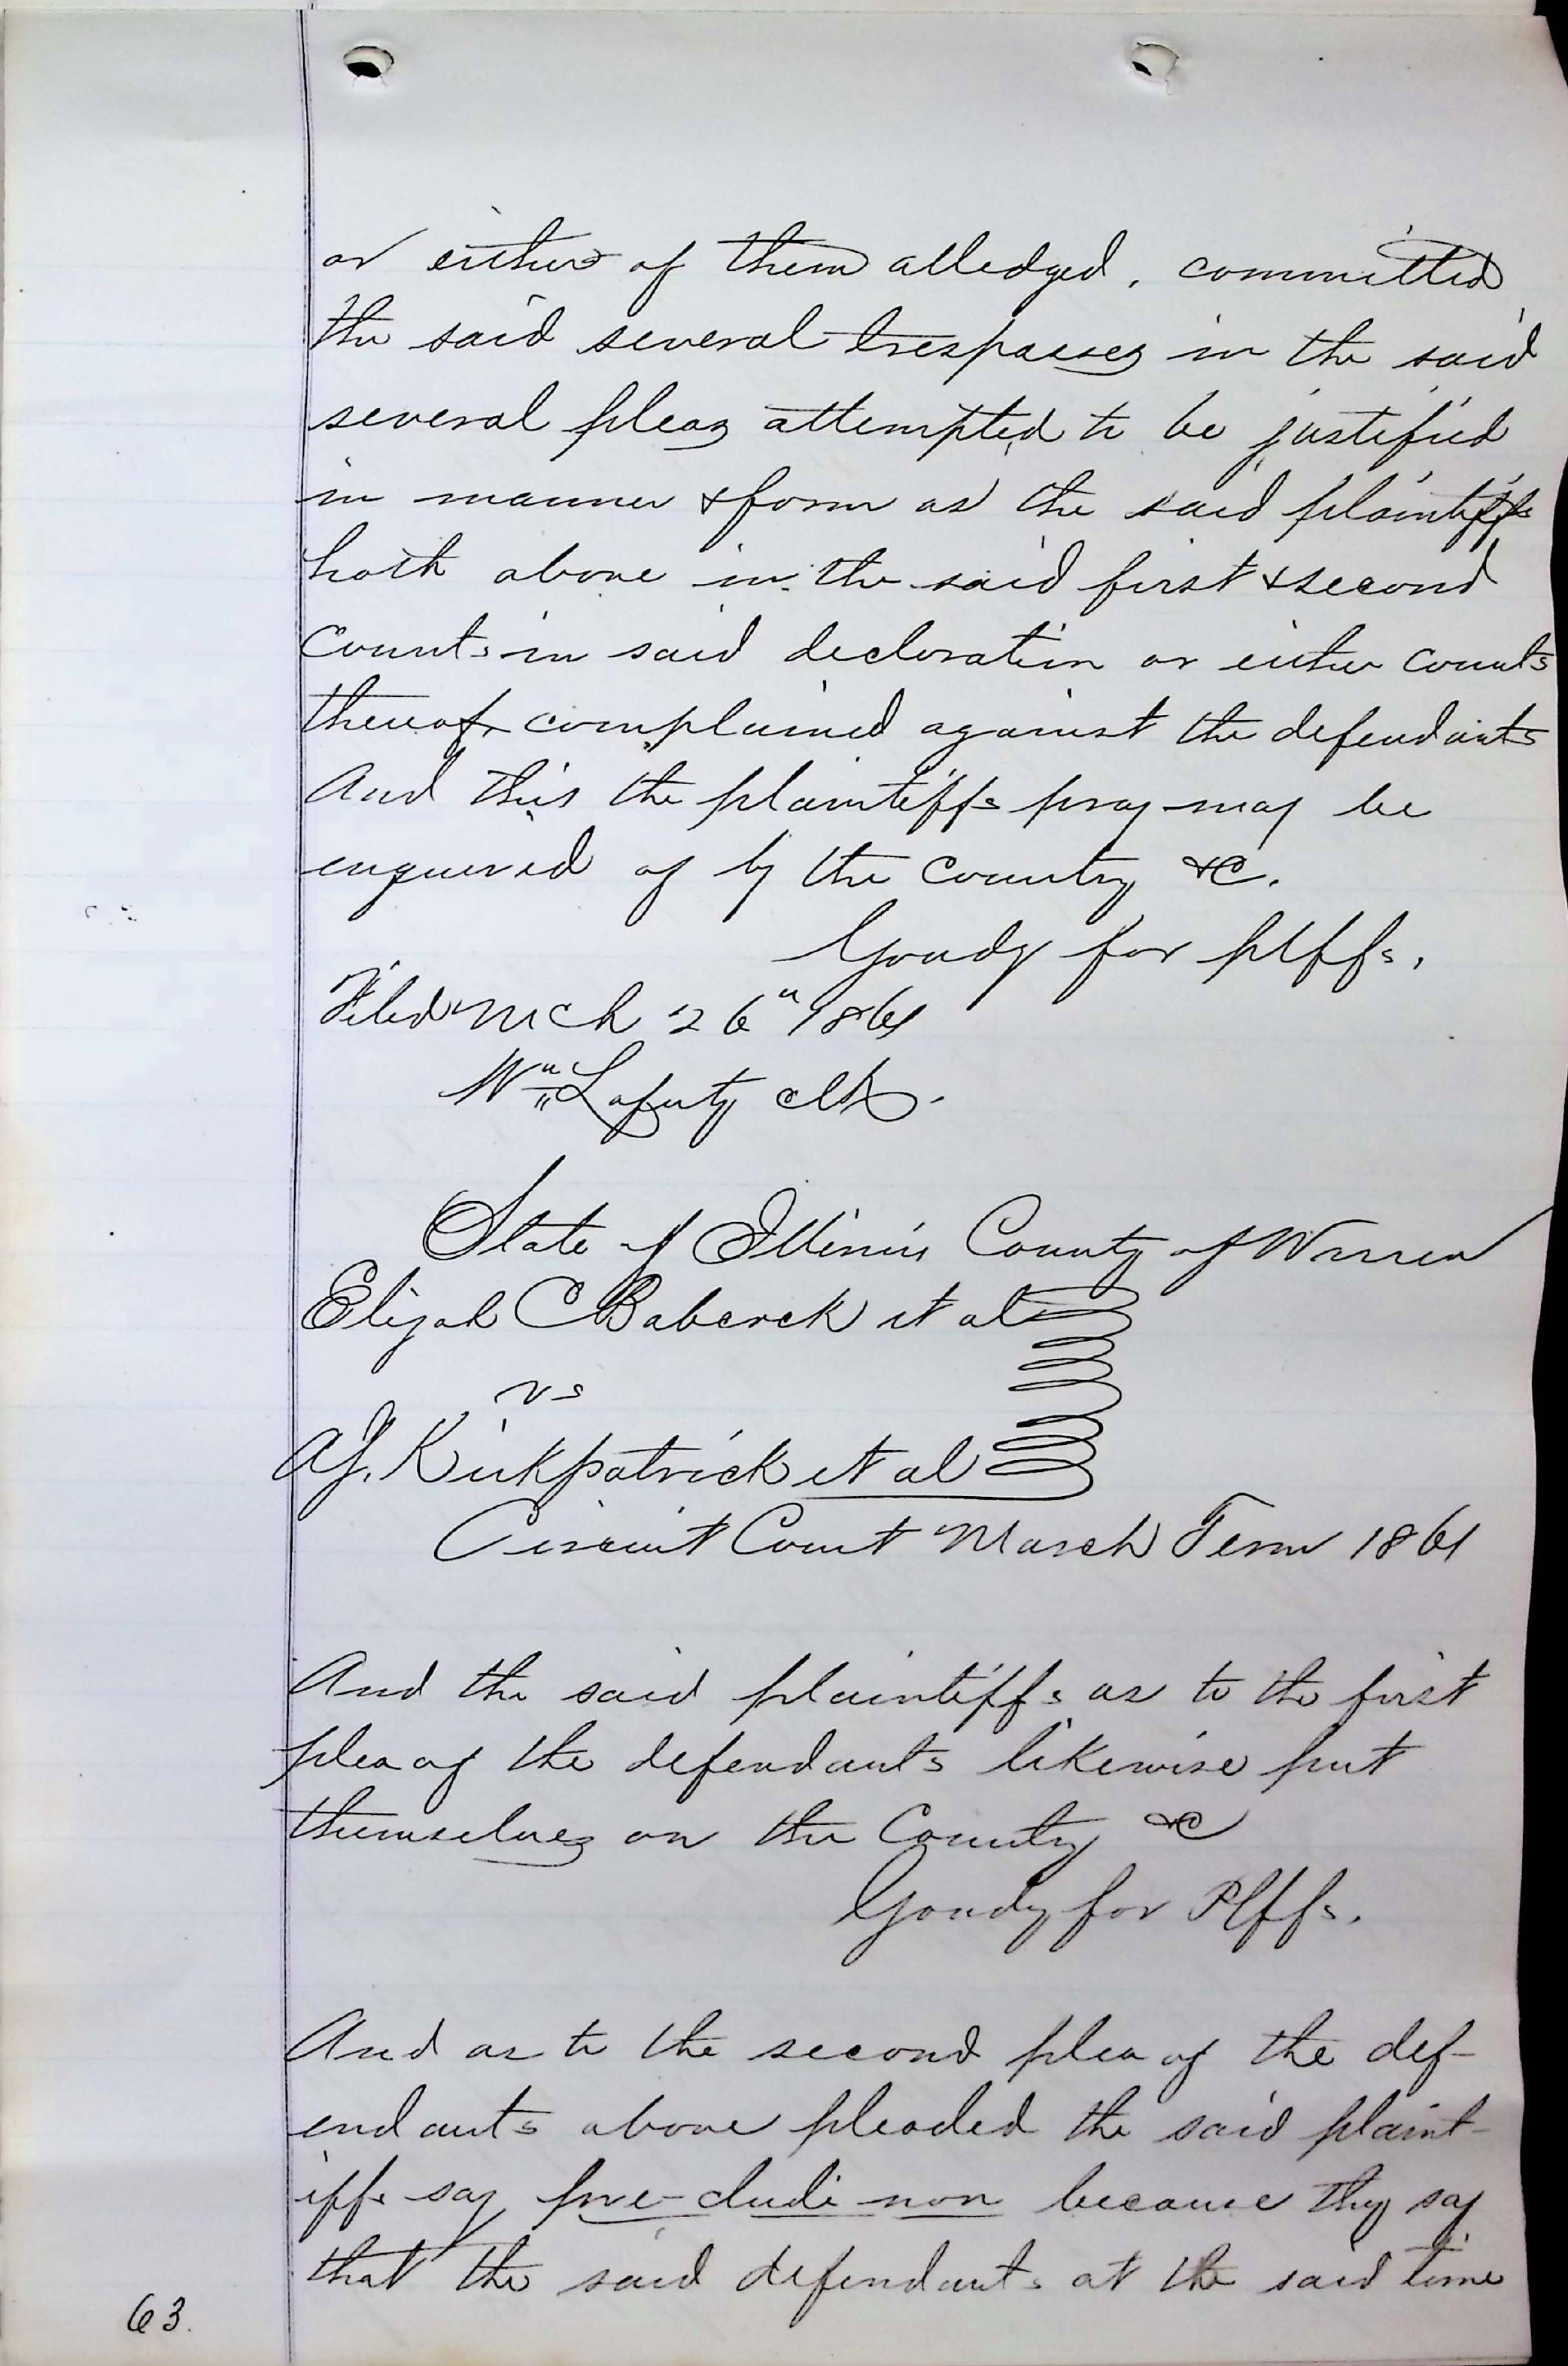 or either of them alledged, committed
the said several trespasses in the said
several pleas attempted to be justified
in manner & form as the said plaintiffs
hath above in the said first & second
Counts in said decleration or either counts
thereof complained against the defendants
And this the plaintiffs pray may be
enquired of by the Country &C.
Goudy for plffs.
Filed Mch 26" 1861
Wm Lafurty clk.
State of Illinois County of Warren
Elijah C Babcock et al
vs
A.J. Kirkpatrick et al
Circuit Court March Term 1861
And the said plaintiffs as to the first
plea of the defendants likewise put
themselves on the County &C
Goudy for Plffs.
And as to the second plea of the def-
endants above pleaded the said plaint-
iffs say pre-cludi non because they say
that the said defendants at the said time
63.